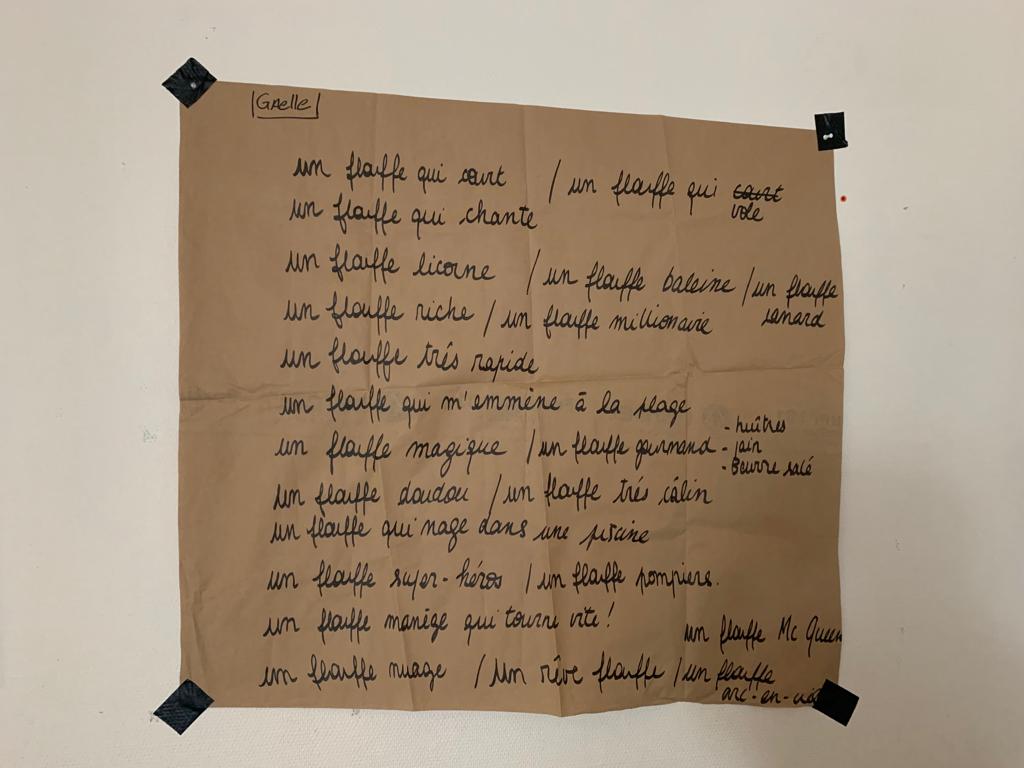 Gaelle
un flouffe qui court / un flouffe qui court
vole
un flouffe qui chante
un flouffe licorne / un flouffe baleine / un flouffe
canard
un flouffe riche / un flouffe millionaire
un flouffe très rapide
un flouffe qui m'emmène à la plage
un flouffe magique / un flouffe gourmand - huîtres
- pain
- Beurre salé
un flouffe doudou / un flouffe trés câlin
un flouffe qui nage dans une piscine
un flouffe super-héros / un flouffe pompiers.
un flouffe manège qui tourne vite !
un flouffe Mc Queen
un flouffe nuage / un rêve flouffe / un flouffe
arc-en-ciel